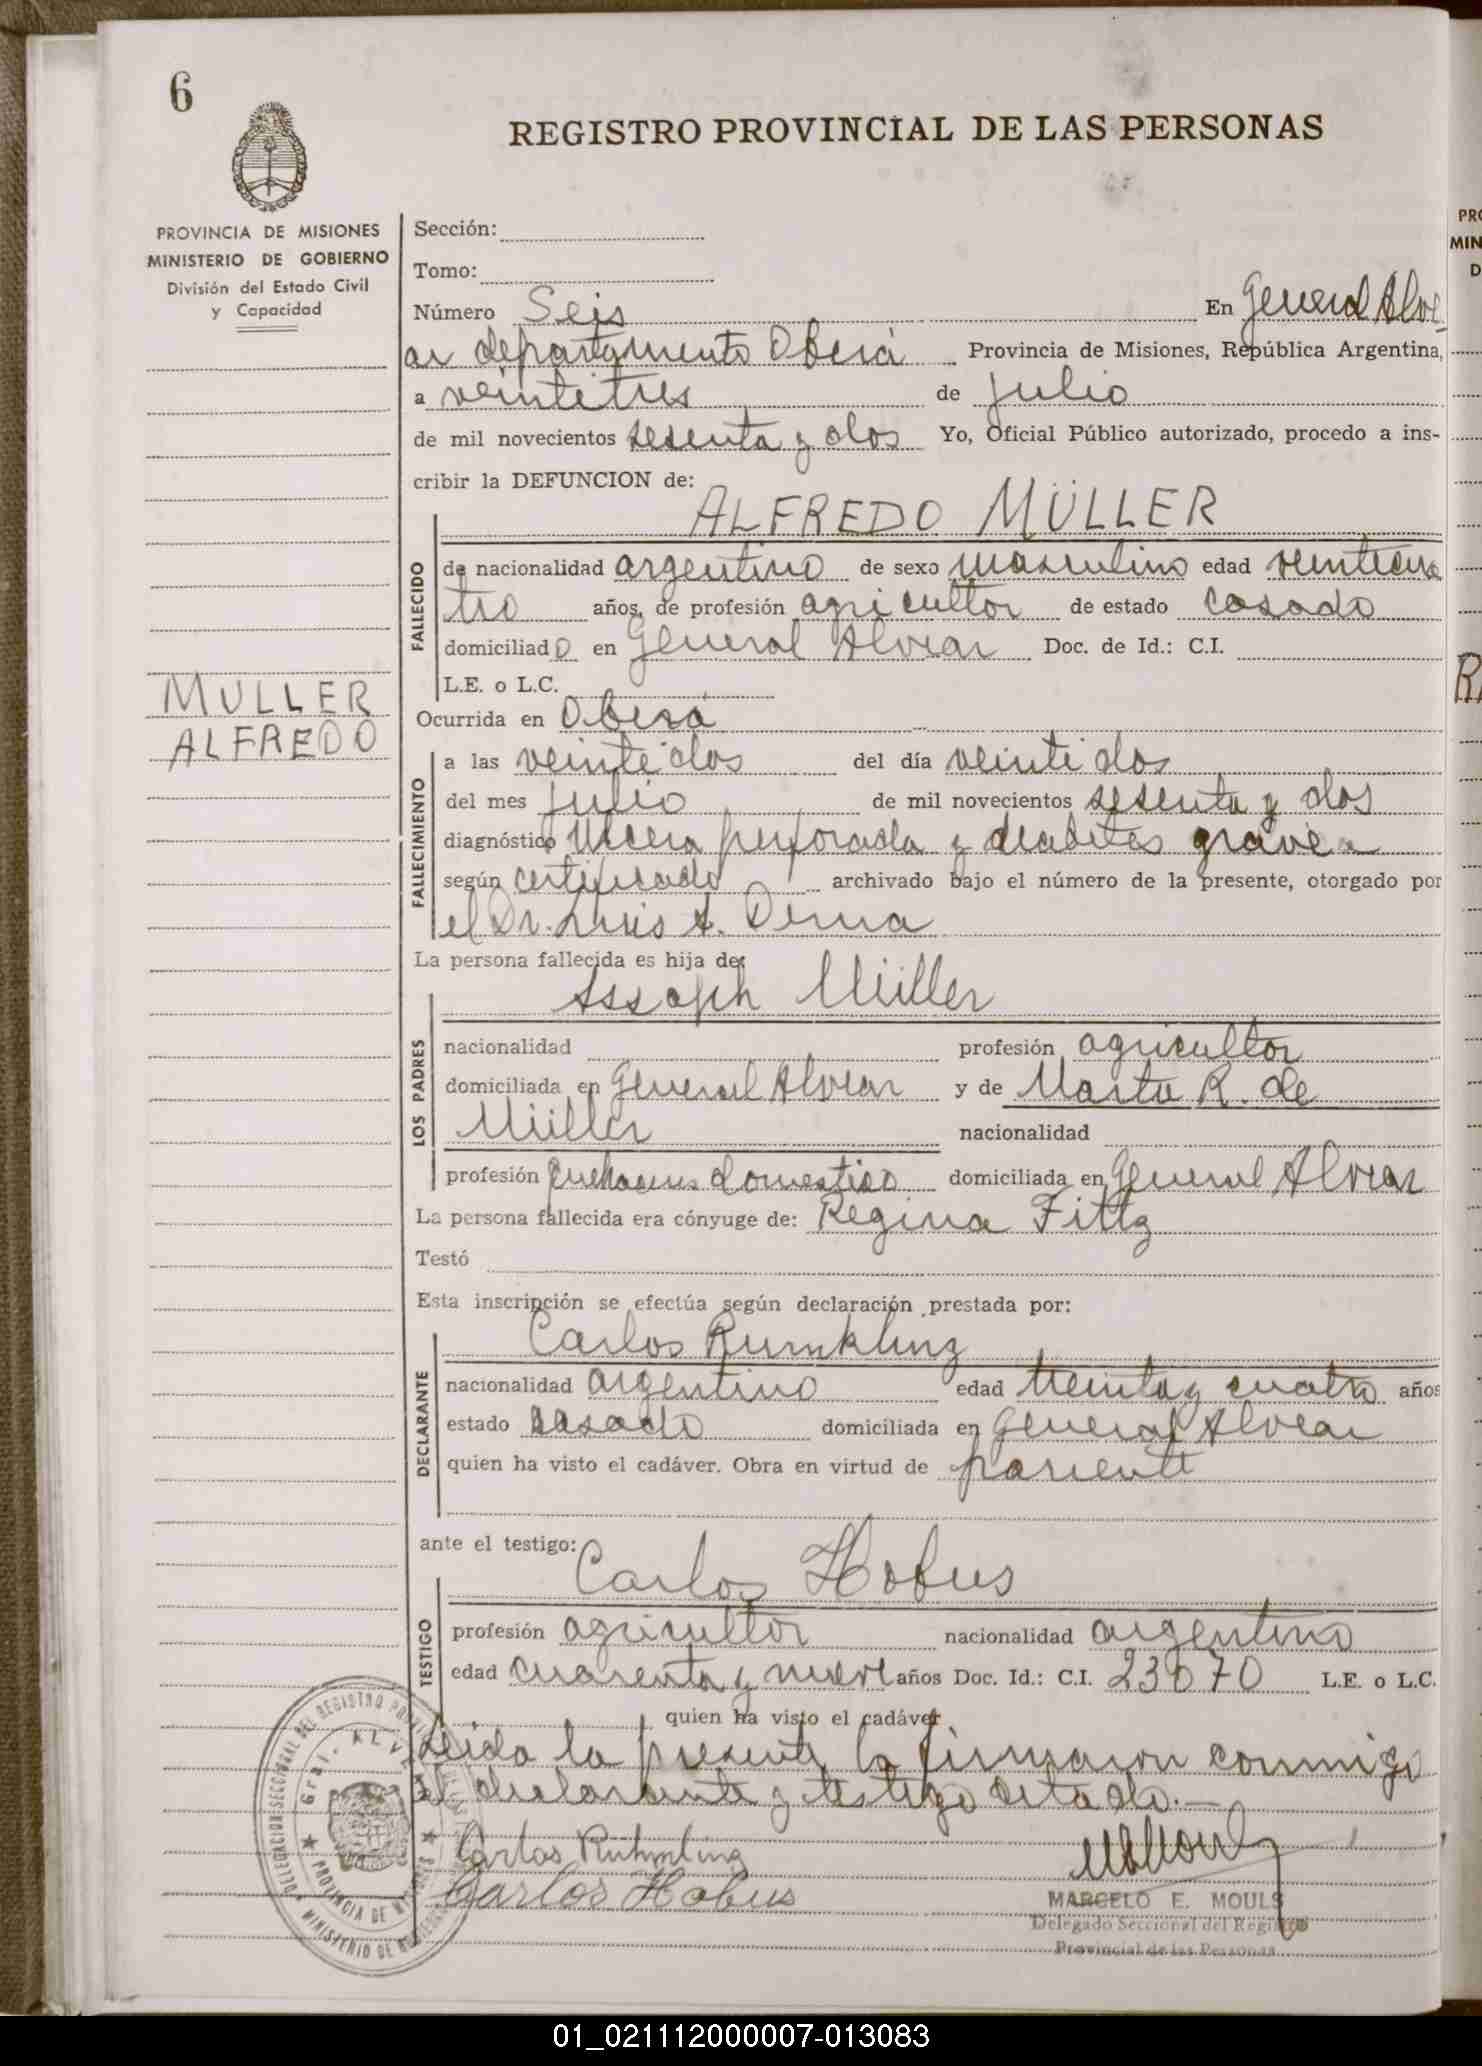 6
REGISTRO PROVINCIAL DE LAS PERSONAS
PROVINCIA DE MISIONES
MINISTERIO DE GOBIERNO
División del Estado Civil
y Capacidad
Sección:
Tomo:
Número Seis En General Alve-
ar departamento Oberá Provincia de Misiones, República Argentina,
a veintitres de julio
de mil novecientos sesenta y dos Yo, Oficial Público autorizado, procedo a ins-
cribir la DEFUNCION de:
ALFREDO MÜLLER
FALLECIDO
de nacionalidad argentino de sexo masculino edad veinticua
tro años, de profesión agricultor de estado casado
domiciliado en General Alvear Doc. de Id.: C.I.
L.E. o L.C.
MULLER
ALFREDO
Ocurrida en Oberá
FALLECIMIENTO
a las veintidos del día veintidos
del mes julio de mil novecientos sesenta y dos
diagnóstico Ulcera perforada y diabetes grave
según certificado archivado bajo el número de la presente, otorgado por
el Dr. Luis A. Derna
La persona fallecida es hija de:
Assaph Müller
LOS PADRES
nacionalidad profesión agricultor
domiciliada en General Alvear y de Marta R. de
Müller nacionalidad
profesión quehaceres domestico domiciliada en General Alvear
La persona fallecida era cónyuge de: Regina Fittz
Testó
Esta inscripción se efectúa según declaración prestada por:
Carlos Rumkling
DECLARANTE
nacionalidad argentino edad treinta y cuatro años
estado casado domiciliada en General Alvear
quien ha visto el cadáver. Obra en virtud de pariente
ante el testigo:
Carlos Hobus
TESTIGO
profesión agricultor nacionalidad argentino
edad cuarenta y nueve años Doc. Id.: C.I. 23070 L.E. o L.C.
quien ha visto el cadáver
Leida la presente la firmaron conmigo
el declarante y testigo citado.—
Carlos Rühmling
Carlos Hobus
MARCELO E. MOULS
Delegado Seccional del Registro
Provincial de las Personas
DELEGACION SECCIONAL DEL REGISTRO
Gral. ALVEAR
PROVINCIA DE MISIONES
MINISTERIO DE
PRO
MIN
D
01_021112000007-013083